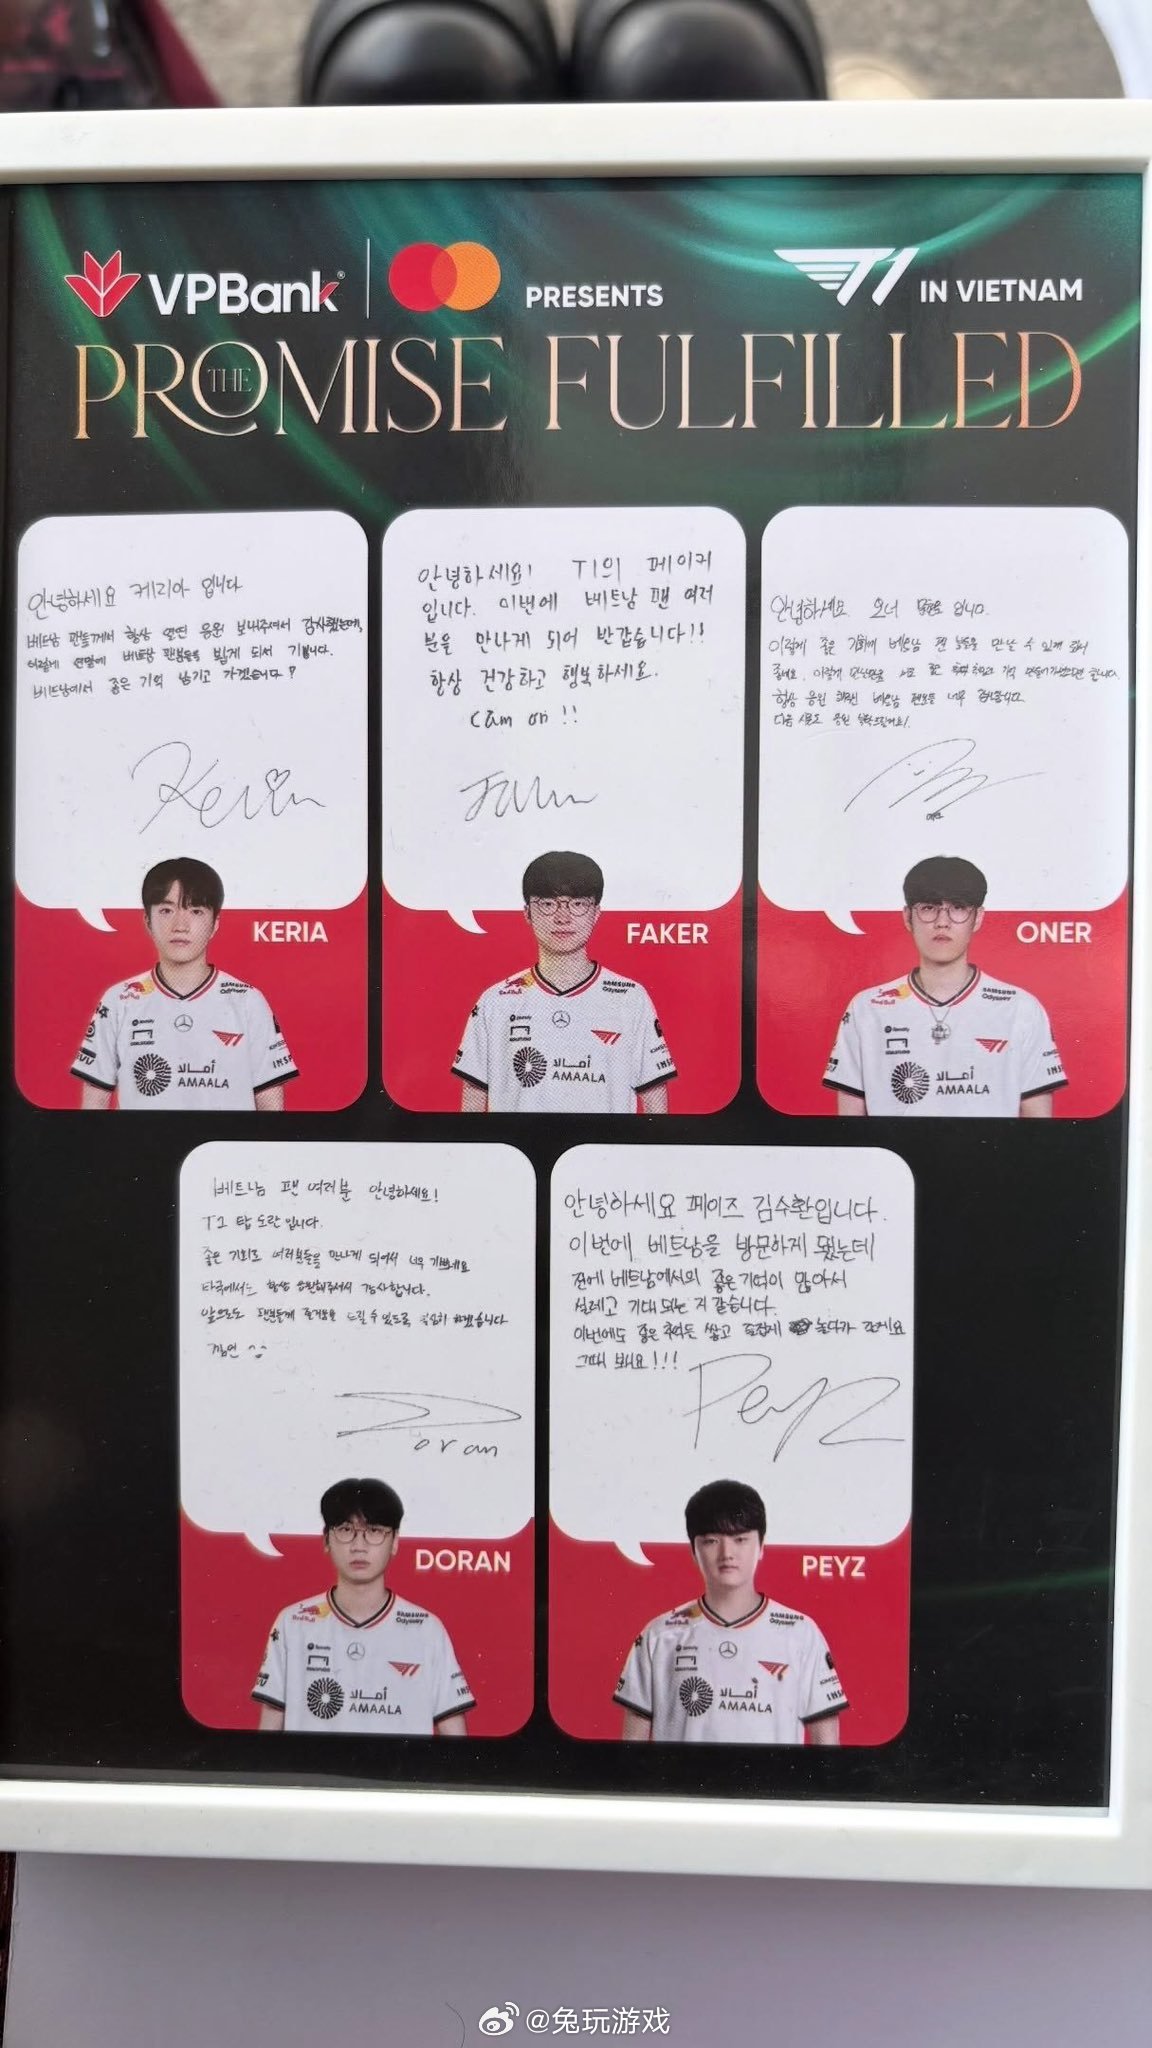 VPBank
PRESENTS
T1 IN VIETNAM
THE PROMISE FULFILLED
안녕하세요 케리아 입니다
베트남 팬들께서 항상 열띤 응원 보내주셔서 감사했는데,
이렇게 연말에 베트남 팬분들을 뵙게 되서 기쁩니다.
베트남에서 좋은 기억 남기고 가겠습니다?
Keria
KERIA
안녕하세요! T1의 페이커
입니다. 이번에 베트남 팬 여러
분을 만나게 되어 반갑습니다!!
항상 건강하고 행복하세요.
Cam on !!
FAKER
안녕하세요 오너 입니다.
이렇게 좋은 기회에 베트남 팬 만날 수 있게 되서
항상 응원 베트남 팬분들 너무 감사합니다
ONER
베트남 팬 여러분 안녕하세요!
T1 탑 도란입니다.
좋은 기회로 여러분들을 만나게 되어서 너무 기쁘네요
타국에서도 항상 응원해주셔서 감사합니다.
앞으로도 팬분들께 즐거움을 드릴 수 있도록 열심히 하겠습니다
깜언 ^^
Doran
DORAN
안녕하세요 페이즈 김수환입니다.
이번에 베트남을 방문하게 됐는데
전에 베트남에서의 좋은 기억이 많아서
설레고 기대 되는 거 같습니다.
이번에도 좋은 추억들 쌓고 즐겁게 놀다가 갈게요
그때 봐요!!!
Peyz
PEYZ
Red Bull
SAMSUNG
Odyssey
T1
أمالا
AMAALA
Red Bull
SAMSUNG
Odyssey
T1
أمالا
AMAALA
Red Bull
SAMSUNG
Odyssey
T1
أمالا
AMAALA
Red Bull
SAMSUNG
Odyssey
T1
أمالا
AMAALA
Red Bull
SAMSUNG
Odyssey
T1
أمالا
AMAALA
@兔玩游戏